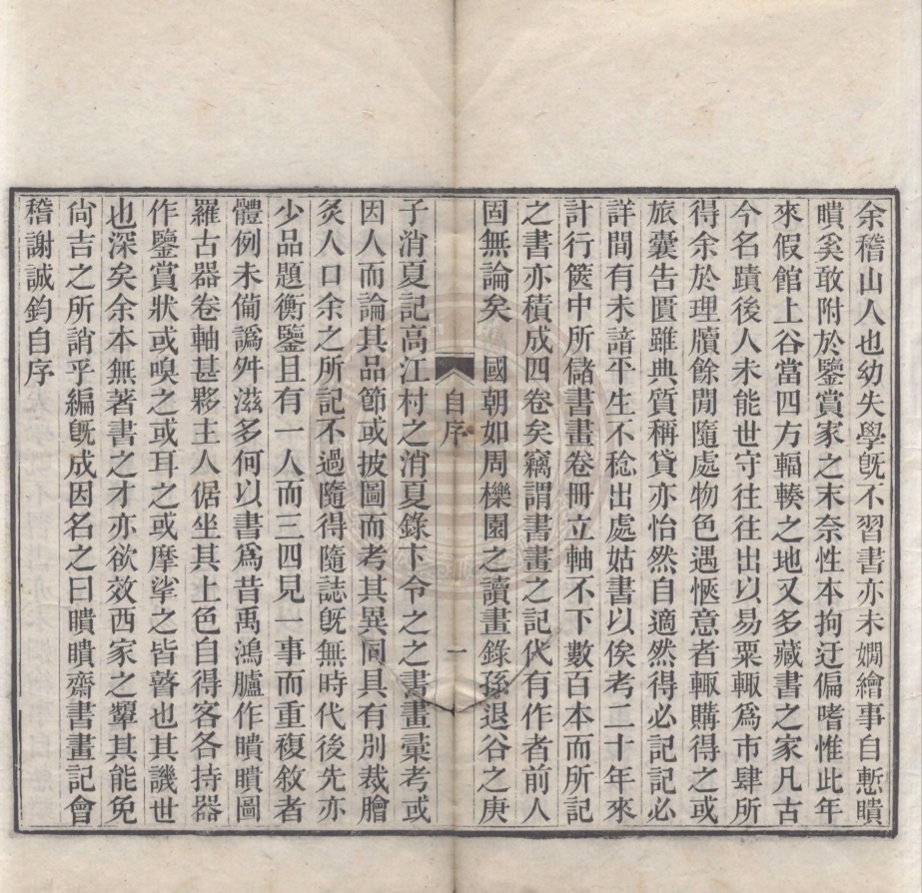 余稽山人也幼失學旣不習書亦未嫺繪事自慙瞶
瞶奚敢附於鑒賞家之末奈性本拘迂偏嗜惟此年
來假館上谷當四方輻輳之地又多藏書之家凡古
今名蹟後人未能世守往往出以易粟輒爲市肆所
得余於理牘餘閒隨處物色遇愜意者輒購得之或
旅囊告匱雖典質稱貸亦怡然自適然得必記記必
詳間有未諳平生不稔出處姑書以俟考二十年來
計行篋中所儲書畫卷冊立軸不下數百本而所記
之書亦積成四卷矣竊謂書畫之記代有作者前人
固無論矣　國朝如周櫟園之讀畫錄孫退谷之庚
自序　一
子消夏記高江村之消夏錄卞令之之書畫彙考或
因人而論其品節或披圖而考其異同具有別裁膾
炙人口余之所記不過隨得隨誌旣無時代後先亦
少品題衡鑒且有一人而三四見一事而重複敘者
體例未備譌舛滋多何以書爲昔禹鴻臚作瞶瞶圖
羅古器卷軸甚夥主人倨坐其上色自得客各持器
作鑒賞狀或嗅之或耳之或摩挲之皆瞽也其譏世
也深矣余本無著書之才亦欲效西家之顰其能免
尙吉之所誚乎編旣成因名之曰瞶瞶齋書畫記會
稽謝誠鈞自序